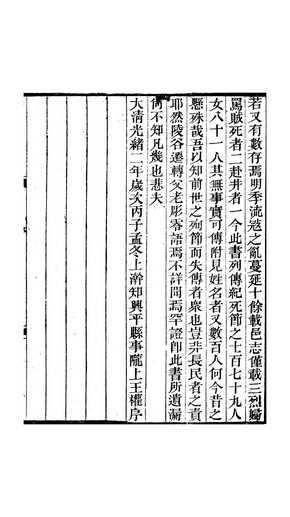 若又有數存焉明季流寇之亂蔓延十餘載邑志僅載三烈婦
罵賊死者二赴井者一今此書列傳紀死節之士百七十九人
女八十一人其無事實可傳附見姓名者又數百人何今昔之
懸殊哉吾以知前世之殉節而失傳者衆也豈非長民者之責
耶然陵谷遷轉父老彫零語焉不詳聞焉罕證卽此書所遺漏
何不知凡幾也悲夫
大清光緒二年歲次丙子孟冬上澣知興平縣事隴上王權序